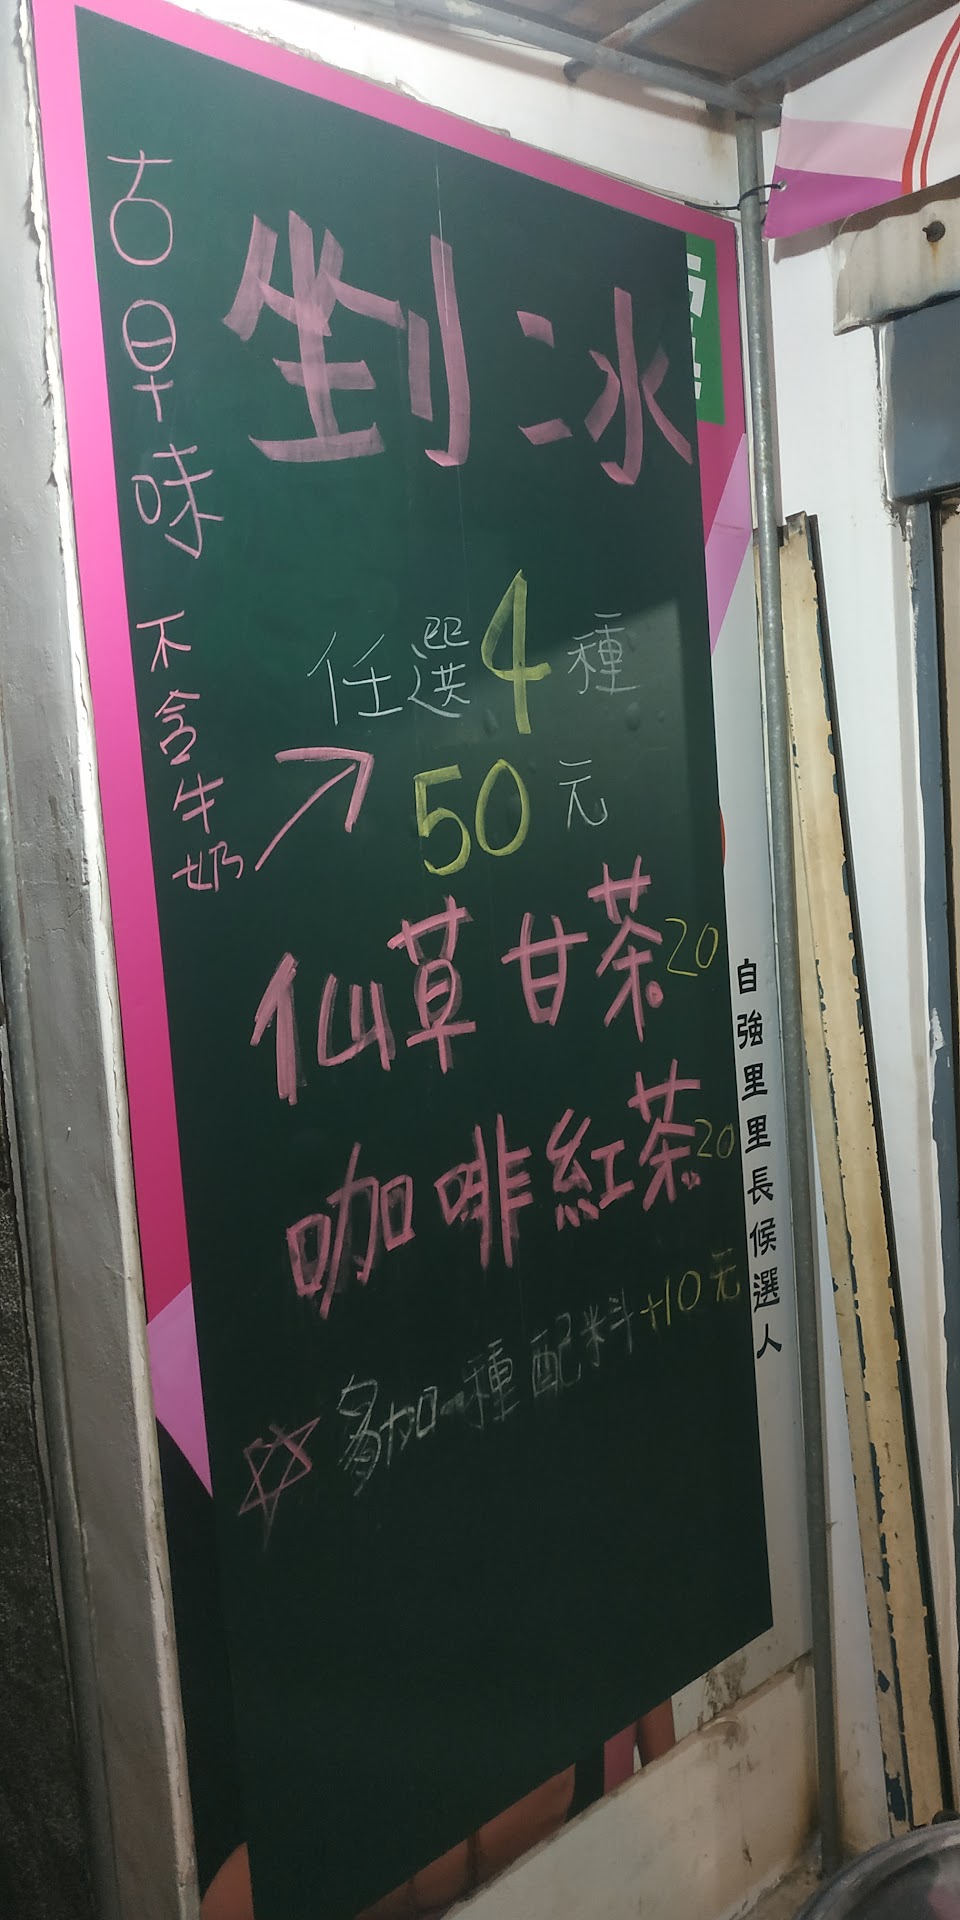 古早味
剉冰
不含牛奶
任選4種
50元
仙草甘茶20
咖啡紅茶20
多加一種配料+10元
自強里里長候選人